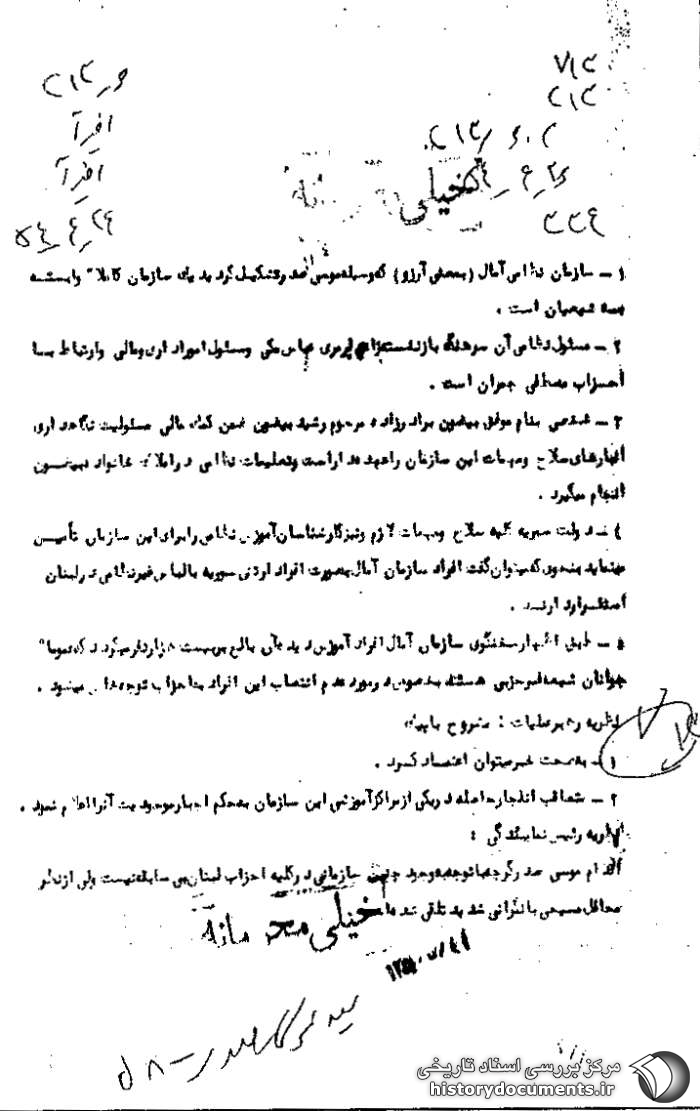 ۷۱۳
۲۱۳
۲۱۳
افرآ
افرآ
۳۳۴
خیلی
۱ ـ سازمان نظامی آمال (بمعنی آرزو) که وسیله موسی صدر تشکیل گردیده یک سازمان کاملا" وابسته
به شیعیان است .
۲ ـ مسئول نظامی آن سرهنگ بازنشسته عباس مکی ومسئول امور اداری ومالی وارتباط بسا
احزاب مصطفی چمران است .
۳ ـ شخصی بنام موفق بیضون برادرزاده مرحوم رشید بیضون ضمن کمک مالی مسئولیت نگاهداری
انبارهای سلاح ومهمات این سازمان رابعهده داراست وتعلیمات نظامی دراملاک خانواده بیضون
انجام میگیرد .
۴ ـ دولت سوریه کلیه سلاح ومهمات لازم ونیزکارشناسان آموزش نظامی رابرای این سازمان تأمین
مینماید بنحویکه میتوان گفت افراد سازمان آمال بصورت افراد ارتش سوریه بالباس غیرنظامی درلبنان
استقرار دارند .
۵ ـ طبق اظهار سخنگوی سازمان آمال افراد آموزش دیده آن بالغ بربیست هزارنفر میگردد که عموما"
جوانان شیعه غیرحزبی هستند بخصوص درمورد عدم انتصاب این افراد به احزاب توجه خاص میشود .
نظریه رهبرعملیات : مشروح بایدها
۱ ـ بصحت خبرمیتوان اعتماد کرد .
۲ ـ متعاقب انفجار حاصله دریکی ازمراکزآموزشی این سازمان بحکم اجبار موجودیت آنرااعلام نمود .
نظریه رئیس نمایندگی :
اقدام موسی صدر گرچه باتوجه بوجود چنین سازمانی در کلیه احزاب لبنان بی سابقه نیست ولی ازنظر
محافل مسیحی بانگرانی شدید تلقی شده
خیلی محرمانه
مرکز بررسی اسناد تاریخی
historydocuments.ir